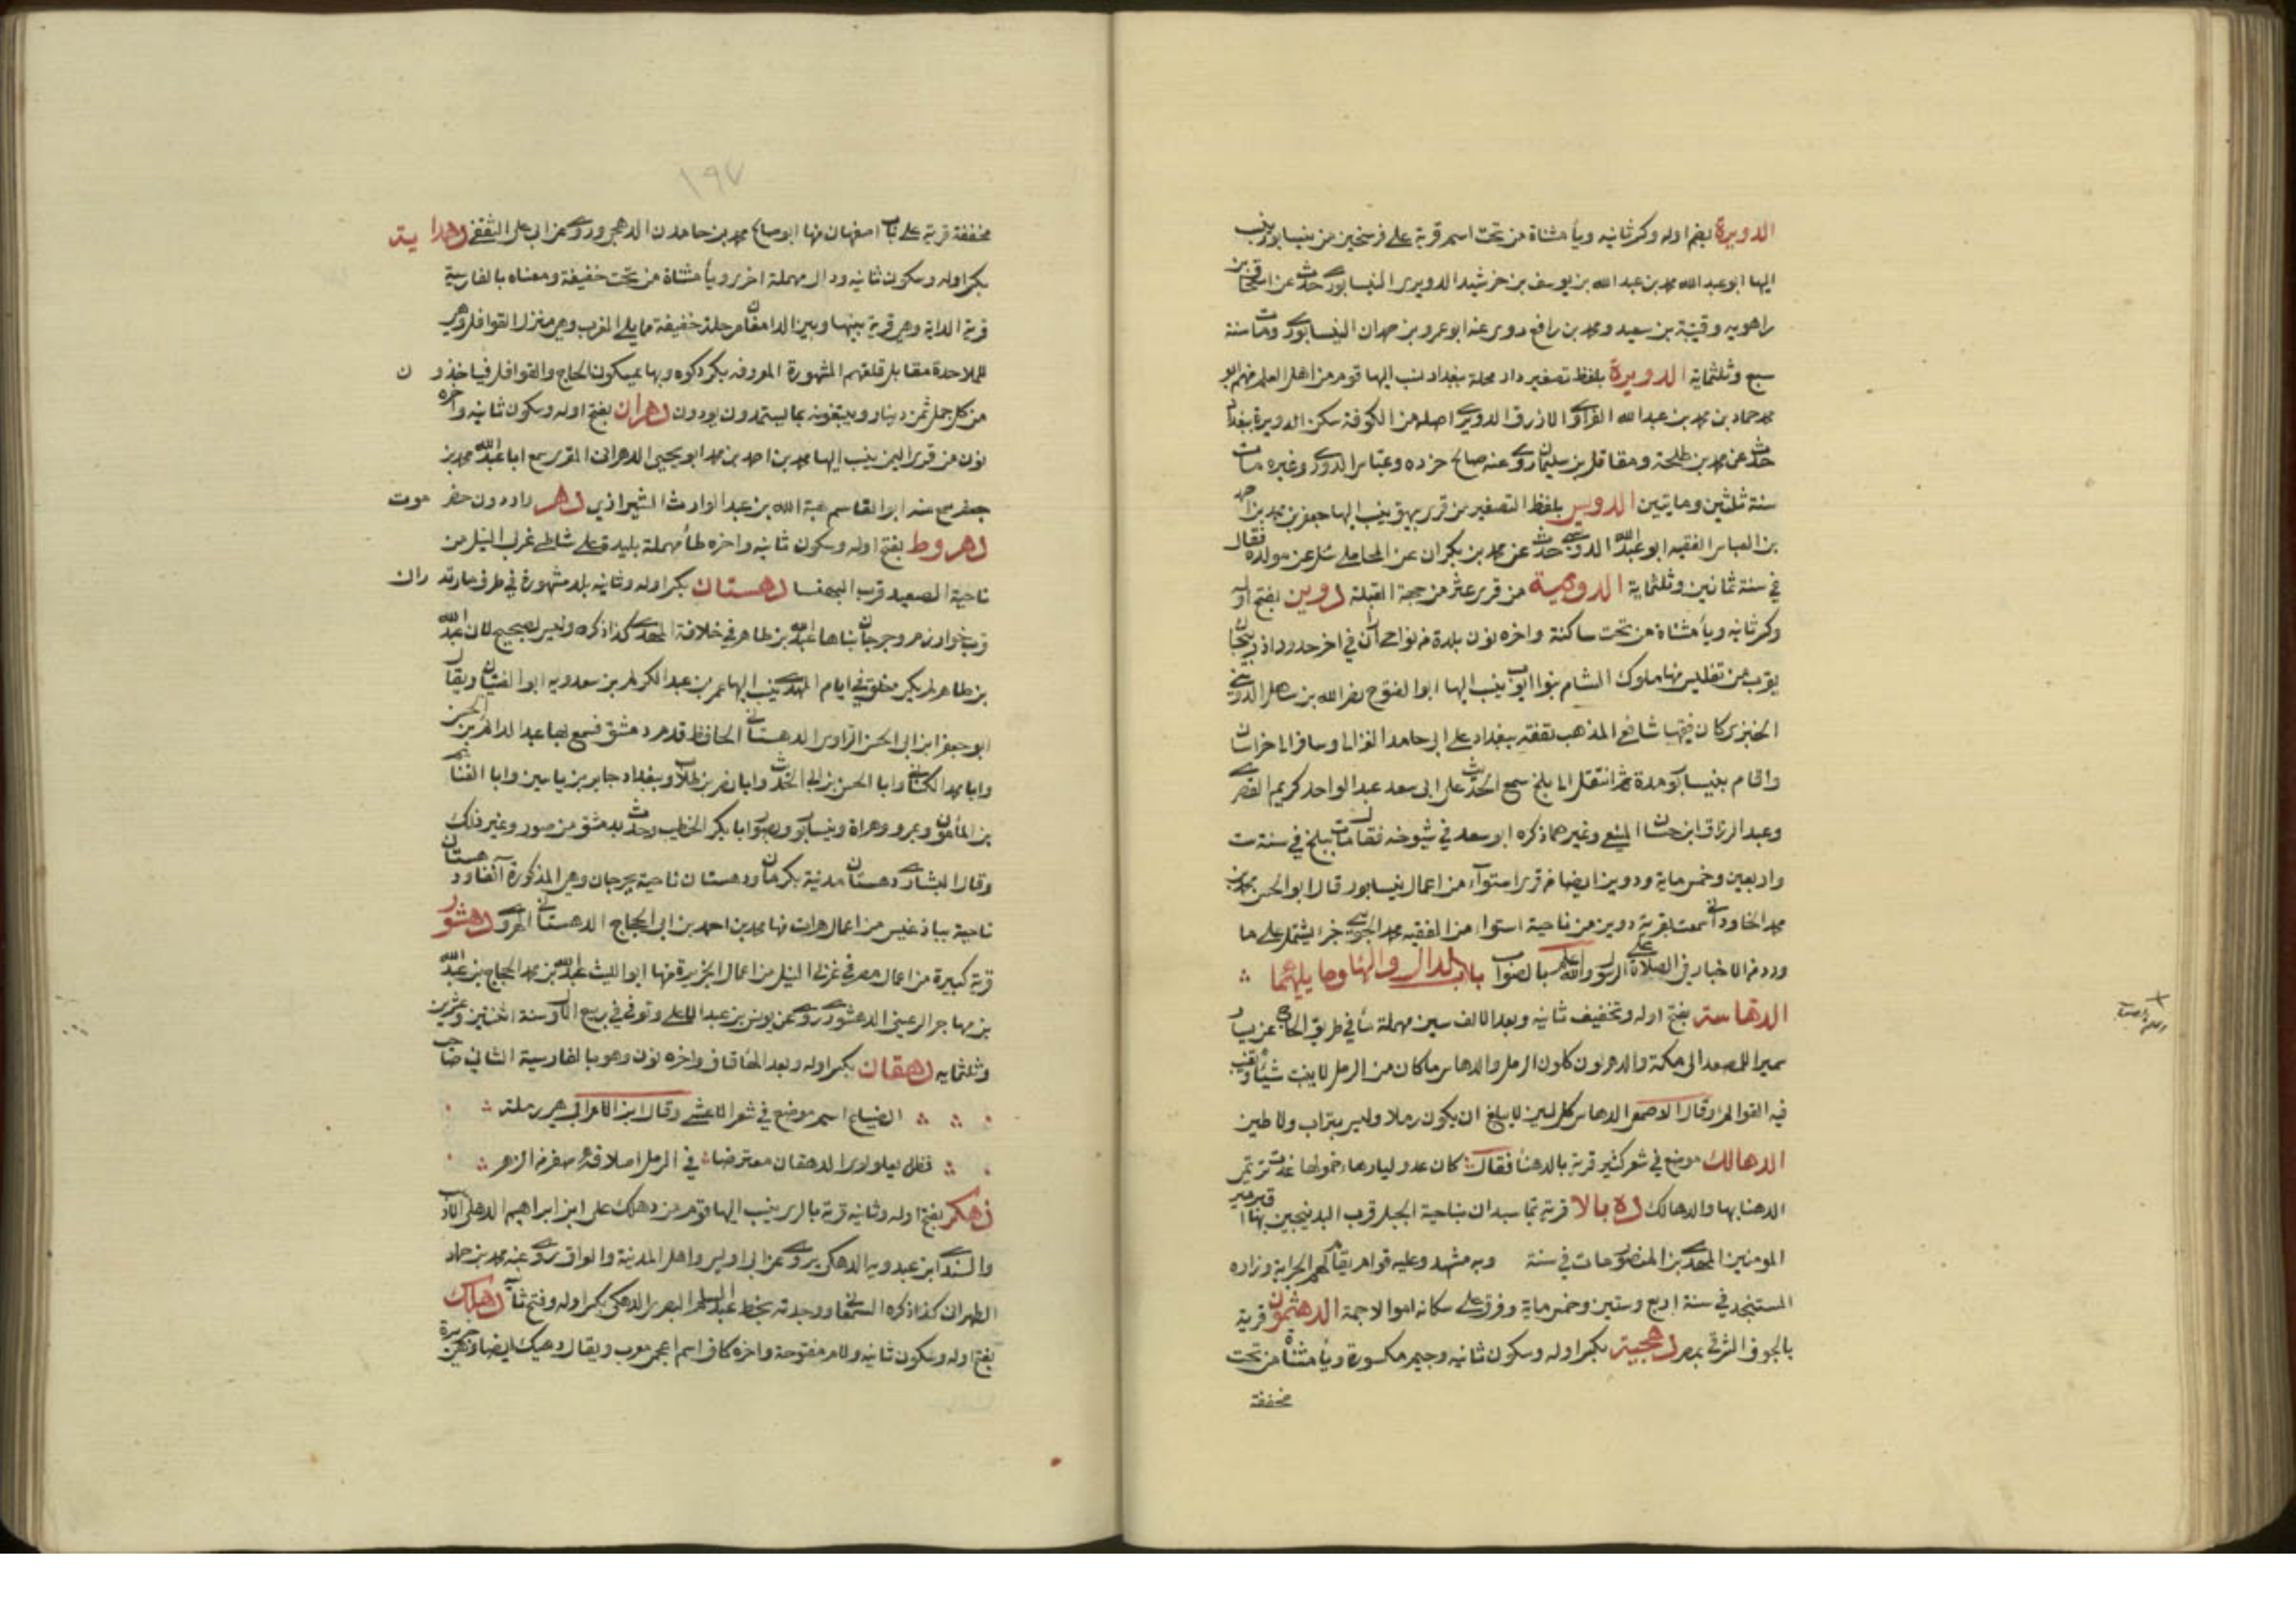 الدويرة بضم اوله وكسر ثانيه ويأ مثناة من تحت اسم قرية على فرسخين من نيسابور ينسب
اليها ابو عبد الله محمد بن عبد الله بن يوسف بن خرشيد الدويري النيسابوري حدث عن اسحاق بن
راهويه وقتيبة بن سعيد ومحمد بن رافع روى عنه ابو عمرو بن حمدان النيسابوري ومات سنة
سبع وثلثماية الدويرة بلفظ تصغير دار محلة ببغداد نسب اليها قوم من اهل العلم منهم ابو
محمد حماد بن محمد بن عبد الله الفزاري الازرق الدويري اصله من الكوفة سكن الدويرة ببغداد
حدث عن محمد بن طلحة ومقاتل بن سليمان روى عنه صالح جزره وعباس الدوري وغيره مات
سنة ثلثين وماتين الدويس بلفظ التصغير من قرى بيهق ينسب اليها جعفر بن محمد بن
بن العباس الفقيه ابو عبد الله الدويسي حدث عن محمد بن بكران عن المحاملي سئل عن مولده فقال
في سنة ثمانين وثلثماية الدويمية من قرى عثر من جهة القبلة دوين بفتح اوله
وكسر ثانيه ويأ مثناة من تحت ساكنة واخره نون بلدة من نواحي اران في اخر حدود اذربيجان
بقرب من تفليس منها ملوك الشام بنوا ايوب ينسب اليها ابوا الفتوح نصر الله بن الدويني
الجنزي كان فقيها شافعي المذهب تفقه ببغداد على ابي حامد الغزالي وسافر الى خراسان
واقام بنيسابور مدة ثم انتقل الى بلخ سمع الحديث على ابي سعد عبد الواحد كريم القشيري
وعبد الرزاق ابن حسان المنيعي وغيرهما ذكره ابو سعد في شيوخه فقال مات ببلخ في سنة ست
واربعين وخمس ماية ودوين ايضا من قرى استوآء من اعمال نيسابور قال ابو الحسن محمد بن
محمد الخاوراني سمعت بقرية دوين من ناحية استوا من الفقيه محمد الجويني جزء يشتمل على ما
ورد من الاخبار في الصلاة على الرسول والله اعلم بالصواب باب الدال والهاء وما يليهما
الدهاسة بفتح اوله وتخفيف ثانيه وبعد الالف سين مهملة مأ في طريق الحاج عن يسار
سميرا للمصعد الى مكة والدهر لون كلون الرمل والدهاس ما كان من الرمل لا ينبت شيئا وتغيب
فيه القوائم وقال الاصمعي الدهاس كل لين لا يبلغ ان يكون رملا وليس بتراب ولا طين
الدهالك موضع في شعر كثير قرية بالدهنا فقال كان عدوليا زهاء حمولها غدت ترتمي
الدهنا بها والدهالك ده بالا قرية بماسبدان بناحية الجبل قرب البندنيجين بها قبر امير
المومنين المهدي بن المنصور مات في سنة وبه مشهد وعليه قوام يقام لهم الجراية وزاده
المستنجد في سنة اربع وستين وخمس ماية وفرق على سكانه اموالا جمة الدهثمون قرية
بالجوف الشرقي بمصر دهجية بكسر اوله وسكون ثانيه وجيم مكسورة ويأ مثناة من تحت
مخففة
١٩٧
مخففة قرية على باب اصفهان منها ابو صالح محمد بن حامد الدهجي وروى عن ابي علي الثقفي دهداية
بكسر اوله وسكون ثانيه ودال مهملة اخرى ويأ مثناة من تحت خفيفة ومعناه بالفارسية
قرية الداية وهي قرية بينها وبين الدامغان مرحلة خفيفة مما يلي الغرب وهي منزل القوافل وهي
للملاحدة مقابل قلعتهم المشهورة المعروفه بكردكوه وبها يمسكون الحاج والقوافل فياخذون
من كل جمل ثمن دينار ويبتغونه بما يستمدون يودون دهران بفتح اوله وسكون ثانيه واخره
نون من قرى اليمن ينسب اليها محمد بن احمد بن محمد ابو يحيى الدهراني المقري سمع ابا عبد الله محمد بن
جعفر سمع منه ابو القاسم هبة الله بن عبد الوارث الشيرازي دهر واد دون حضرموت
دهروط بفتح اوله وسكون ثانيه واخره طأ مهملة بليد على شاطي غربي النيل من
ناحية الصعيد قرب البهنسا دهستان بكسر اوله وثانيه بلد مشهورة في طرف مازندران
قرب خوارزم وجرجان بناها عبد الله بن طاهر في خلافة المهدي كذا ذكره وليس بصحيح لان عبد الله
بن طاهر لم يكن مخلوق في ايام المهدي ينسب اليها عمر بن عبد الكريم بن سعدويه ابو الفتيان ويقال
ابو حفص ابن ابي الحسن الرواسي الدهستاني الحافظ قدم دمشق فسمع بها عبد الدائم بن الحسن
وابا محمد الكتاني وابا الحسن بن ابي الحديد وابا نصر بن طلاب وببغداد جابر بن ياسين وابا الغنائم
بن المأمون وبمرو وهراة ونيسابور وبصور ابا بكر الخطيب وحدث بدمشق من صور وغير ذلك
وقال البشاري دهستان مدنية بكرمان ودهستان ناحية بجرجان وهي المذكورة آنفا ودهستان
ناحية بباذغيس من اعمال هرات منها محمد بن احمد بن ابي الحجاج الدهستاني الهروي دهشور
قرية كبيرة من اعمال مصر في غربي النيل من اعمال الجيزة منها ابو الليث عبد الله بن محمد الحجاج بن عبد الله
بن مهاجر الرعيني الدهشوري روى عن يونس بن عبد الاعلى وتوفي في ربيع الاول سنة اثنين وعشرين
وثلثمايه دهقان بكسر اوله وبعد الهأ قاف واخره نون وهو بالفارسية الثاني صاحب
الضياع اسم موضع في شعر الاعشى وقال ابن الاعرابي هي رملة
فظل يعلو لوى الدهقان معترضا في الرمل
دهك بفتح اوله وثانيه قرية بالري ينسب اليها قوم من دهك علي ابن ابراهيم الدهكي
والسندي ابن عبدويه الدهكي يروي عن ابي اويس واهل المدينة والعراق روى عنه محمد بن حماد
الطهراني كذا ذكره السمعاني ووجدته بخط عبد السلام البصري الدهكي بكسر اوله وفتح ثانيه دهلك
بفتح اوله وسكون ثانيه ولام مفتوحة واخره كاف اسم اعجمي معرب ويقال دهيك ايضا وهي جزيرة